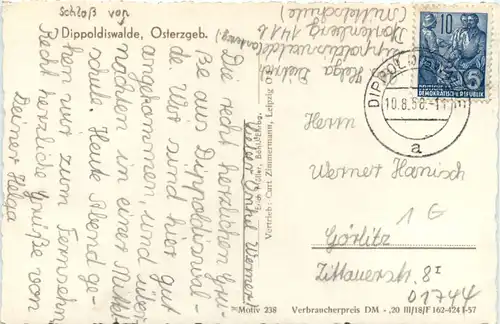 Schloß von
Dippoldiswalde, Osterzgeb.
Lieber Onkel Werner!
Die recht herzlichen Grü-
ße aus Dippoldiswal-
de. Wir sind hier gut
angekommen, und über-
nachten in einer Mittel-
schule. Heute Abend ge-
hen wir zum Fernsehn
Recht herzliche Grüße von
Deiner Helga
Helga
Dippoldiswalde
(Mittelschule)
Erich Müller, 
Vertrieb: Curt Zimmermann, Leipzig O
10
DEUTSCHE
DEMOKRATISCHE REPUBLIK
DIPPOLDISWALDE
10.8.58.-11
a
Herrn
Werner Hanisch
1 G
Görlitz
Zittauerstr. 8 I
01744
Motiv 238 Verbraucherpreis DM -,20 III/18/F 162-424 1-57